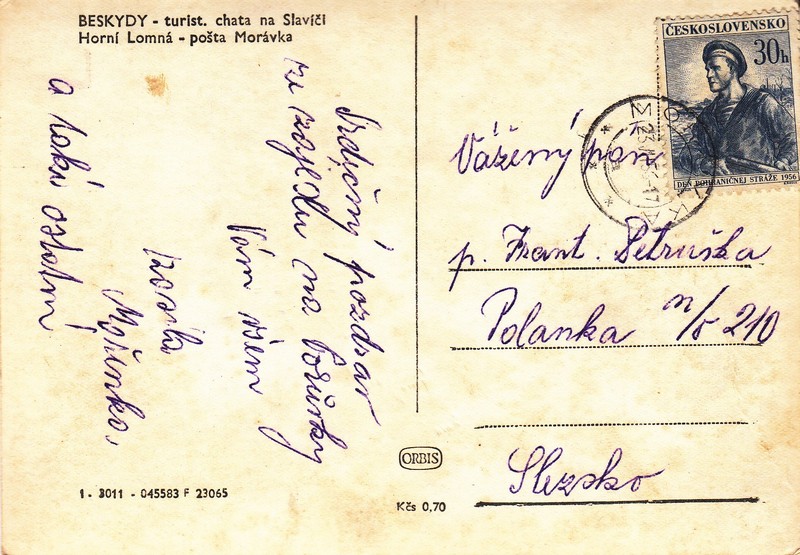 BESKYDY - turist. chata na Slavíči
Horní Lomná - pošta Morávka
Srdečný pozdrav
ze zájezdu na
Vám všem
zasílá
Mařenka,
a také ostatní
1 - 3011 - 045583 F 23065
ORBIS
Kčs 0,70
ČESKOSLOVENSKO
30h
DEN POHRANIČNEJ STRÁŽE 1956
Vážený pan
p. Frant. Petruška
Polanka n/o 210
Slezsko